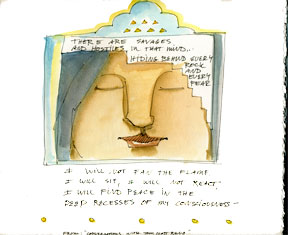 THERE ARE SAVAGES
AND HOSTILES IN THAT MIND..
HIDING BEHIND EVERY
ROCK
AND
EVERY
FEAR
I WILL NOT FAN THE FLAME
I WILL SIT, I WILL NOT REACT,
I WILL FIND PEACE IN THE
DEEP RECESSES OF MY CONSCIOUSNESS -
FROM: WITH